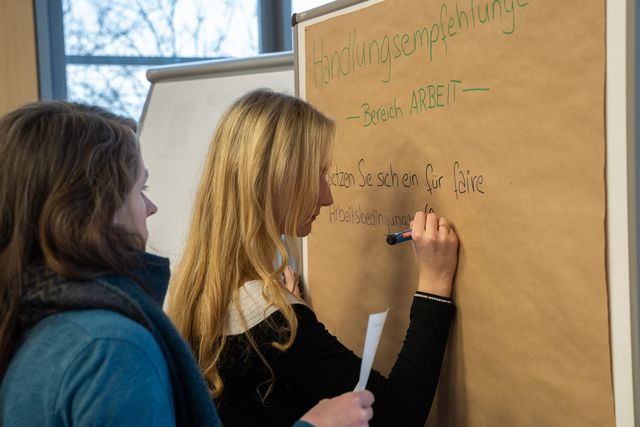 Handlungsempfehlunge
— Bereich ARBEIT —
etzen Sie sich ein für faire
Arbeitsbedingungen